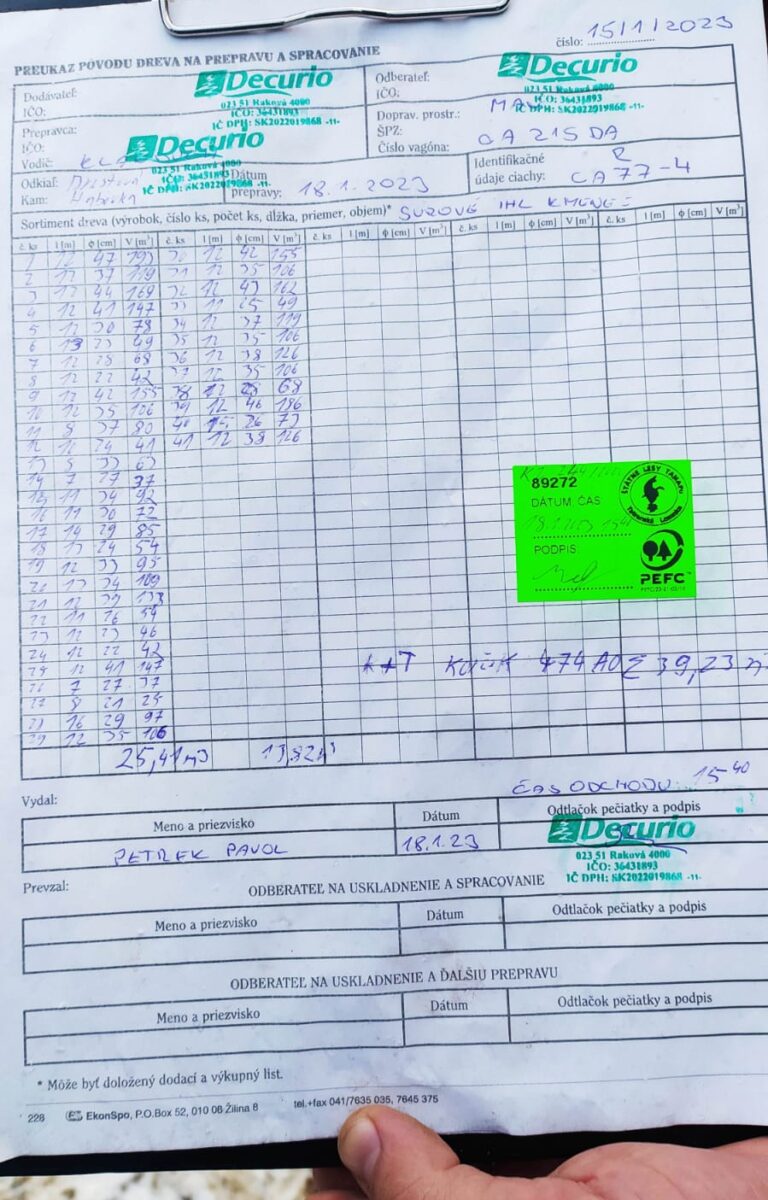 číslo: 15/1/2023
PREUKAZ PÔVODU DREVA NA PREPRAVU A SPRACOVANIE
Dodávateľ: Decurio
IČO: 023 51 Raková 4000
IČO: 36431893
IČ DPH: SK2022019868 -11-
Odberateľ: Decurio
IČO: 023 51 Raková 4000
IČO: 36431893
IČ DPH: SK2022019868 -11-
Prepravca: Decurio
IČO: 023 51 Raková 4000
IČO: 36431893
IČ DPH: SK2022019868 -11-
Vodič:
Doprav. prostr.: MAN
ŠPZ: CA 215 DA
Číslo vagóna:
Odkiaľ:
Kam:
Dátum prepravy: 18.1.2023
Identifikačné údaje ciachy: R CA 77-4
Sortiment dreva (výrobok, číslo ks, počet ks, dĺžka, priemer, objem)* SUROVÉ IHL KMENE
č. ks l [m] ϕ [cm] V [m³] č. ks l [m] ϕ [cm] V [m³] č. ks l [m] ϕ [cm] V [m³] č. ks l [m] ϕ [cm] V [m³] č. ks l [m] ϕ [cm] V [m³]
1 12 47 193 30 12 42 155
2 12 37 119 31 12 35 106
3 12 44 169 32 12 43 162
4 12 41 147 33 11 25 49
5 12 30 78 34 12 37 119
6 13 23 49 35 12 35 106
7 12 28 68 36 12 38 126
8 12 22 42 37 12 35 106
9 12 42 155 38 12 28 68
10 12 35 106 39 12 46 186
11 8 37 80 40 26 73
12 24 41 41 12 38 126
13 33 63
14 7 27 37
15 11 34 92
16 11 30 72
17 14 29 85
18 13 24 54
19 12 33 95
20 13 34 109
21 12 39 133
22 11 26 54
23 12 23 46
24 12 22 42
25 12 41 147
26 7 27 37
27 8 21 25
28 16 29 97
29 12 35 106
25,41 m3 13,82 m³
89272
DÁTUM, ČAS
PODPIS:
ŠTÁTNE LESY TANAPU
Tatranská Lomnica
PEFC
474 Σ 39,23 m
ČAS ODCHODU: 15 40
Vydal:
Meno a priezvisko Dátum Odtlačok pečiatky a podpis
PETREK PAVOL 18.1.23 Decurio
023 51 Raková 4000
IČO: 36431893
IČ DPH: SK2022019868 -11-
Prevzal:
ODBERATEĽ NA USKLADNENIE A SPRACOVANIE
Meno a priezvisko Dátum Odtlačok pečiatky a podpis
ODBERATEĽ NA USKLADNENIE A ĎALŠIU PREPRAVU
Meno a priezvisko Dátum Odtlačok pečiatky a podpis
* Môže byť doložený dodací a výkupný list.
228 EkonSpo, P.O.Box 52, 010 08 Žilina 8 tel.+fax 041/7635 035, 7645 375